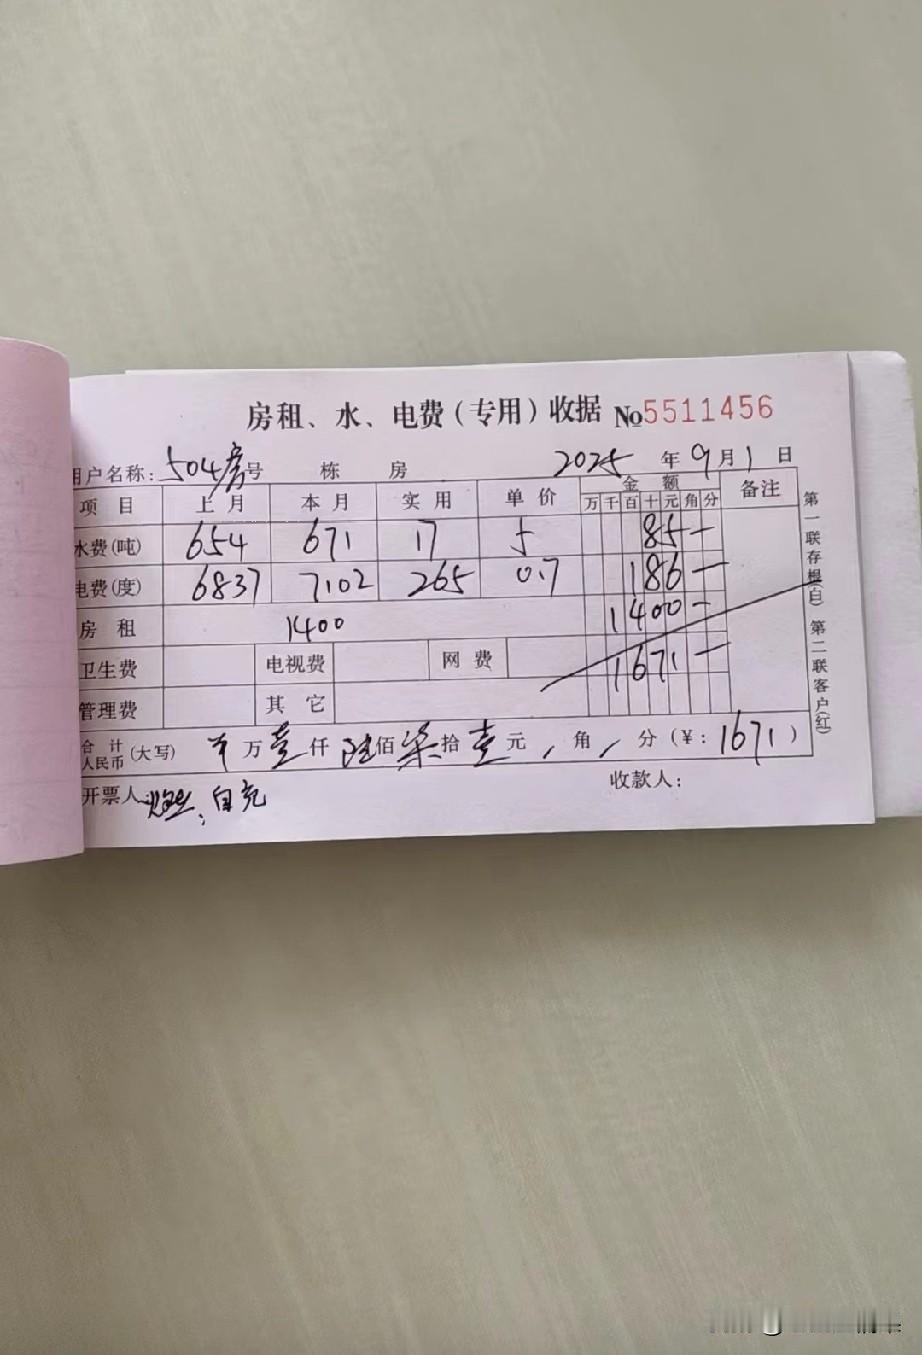 房租、水、电费(专用)收据 No5511456
用户名称:504房号 栋 房 2025年9月1日
项目 上月 本月 实用 单价 金额 备注
万千百十元角分
水费(吨) 654 671 17 5 85—
电费(度) 6837 7102 265 0.7 186—
房租 1400 1400—
卫生费 电视费 网费 1671—
管理费 其它
合计人民币(大写) 万壹仟陆佰柒拾壹元 / 角 / 分(¥:1671)
开票人: 自充 收款人:
第一联存根(白) 第二联客户(红)